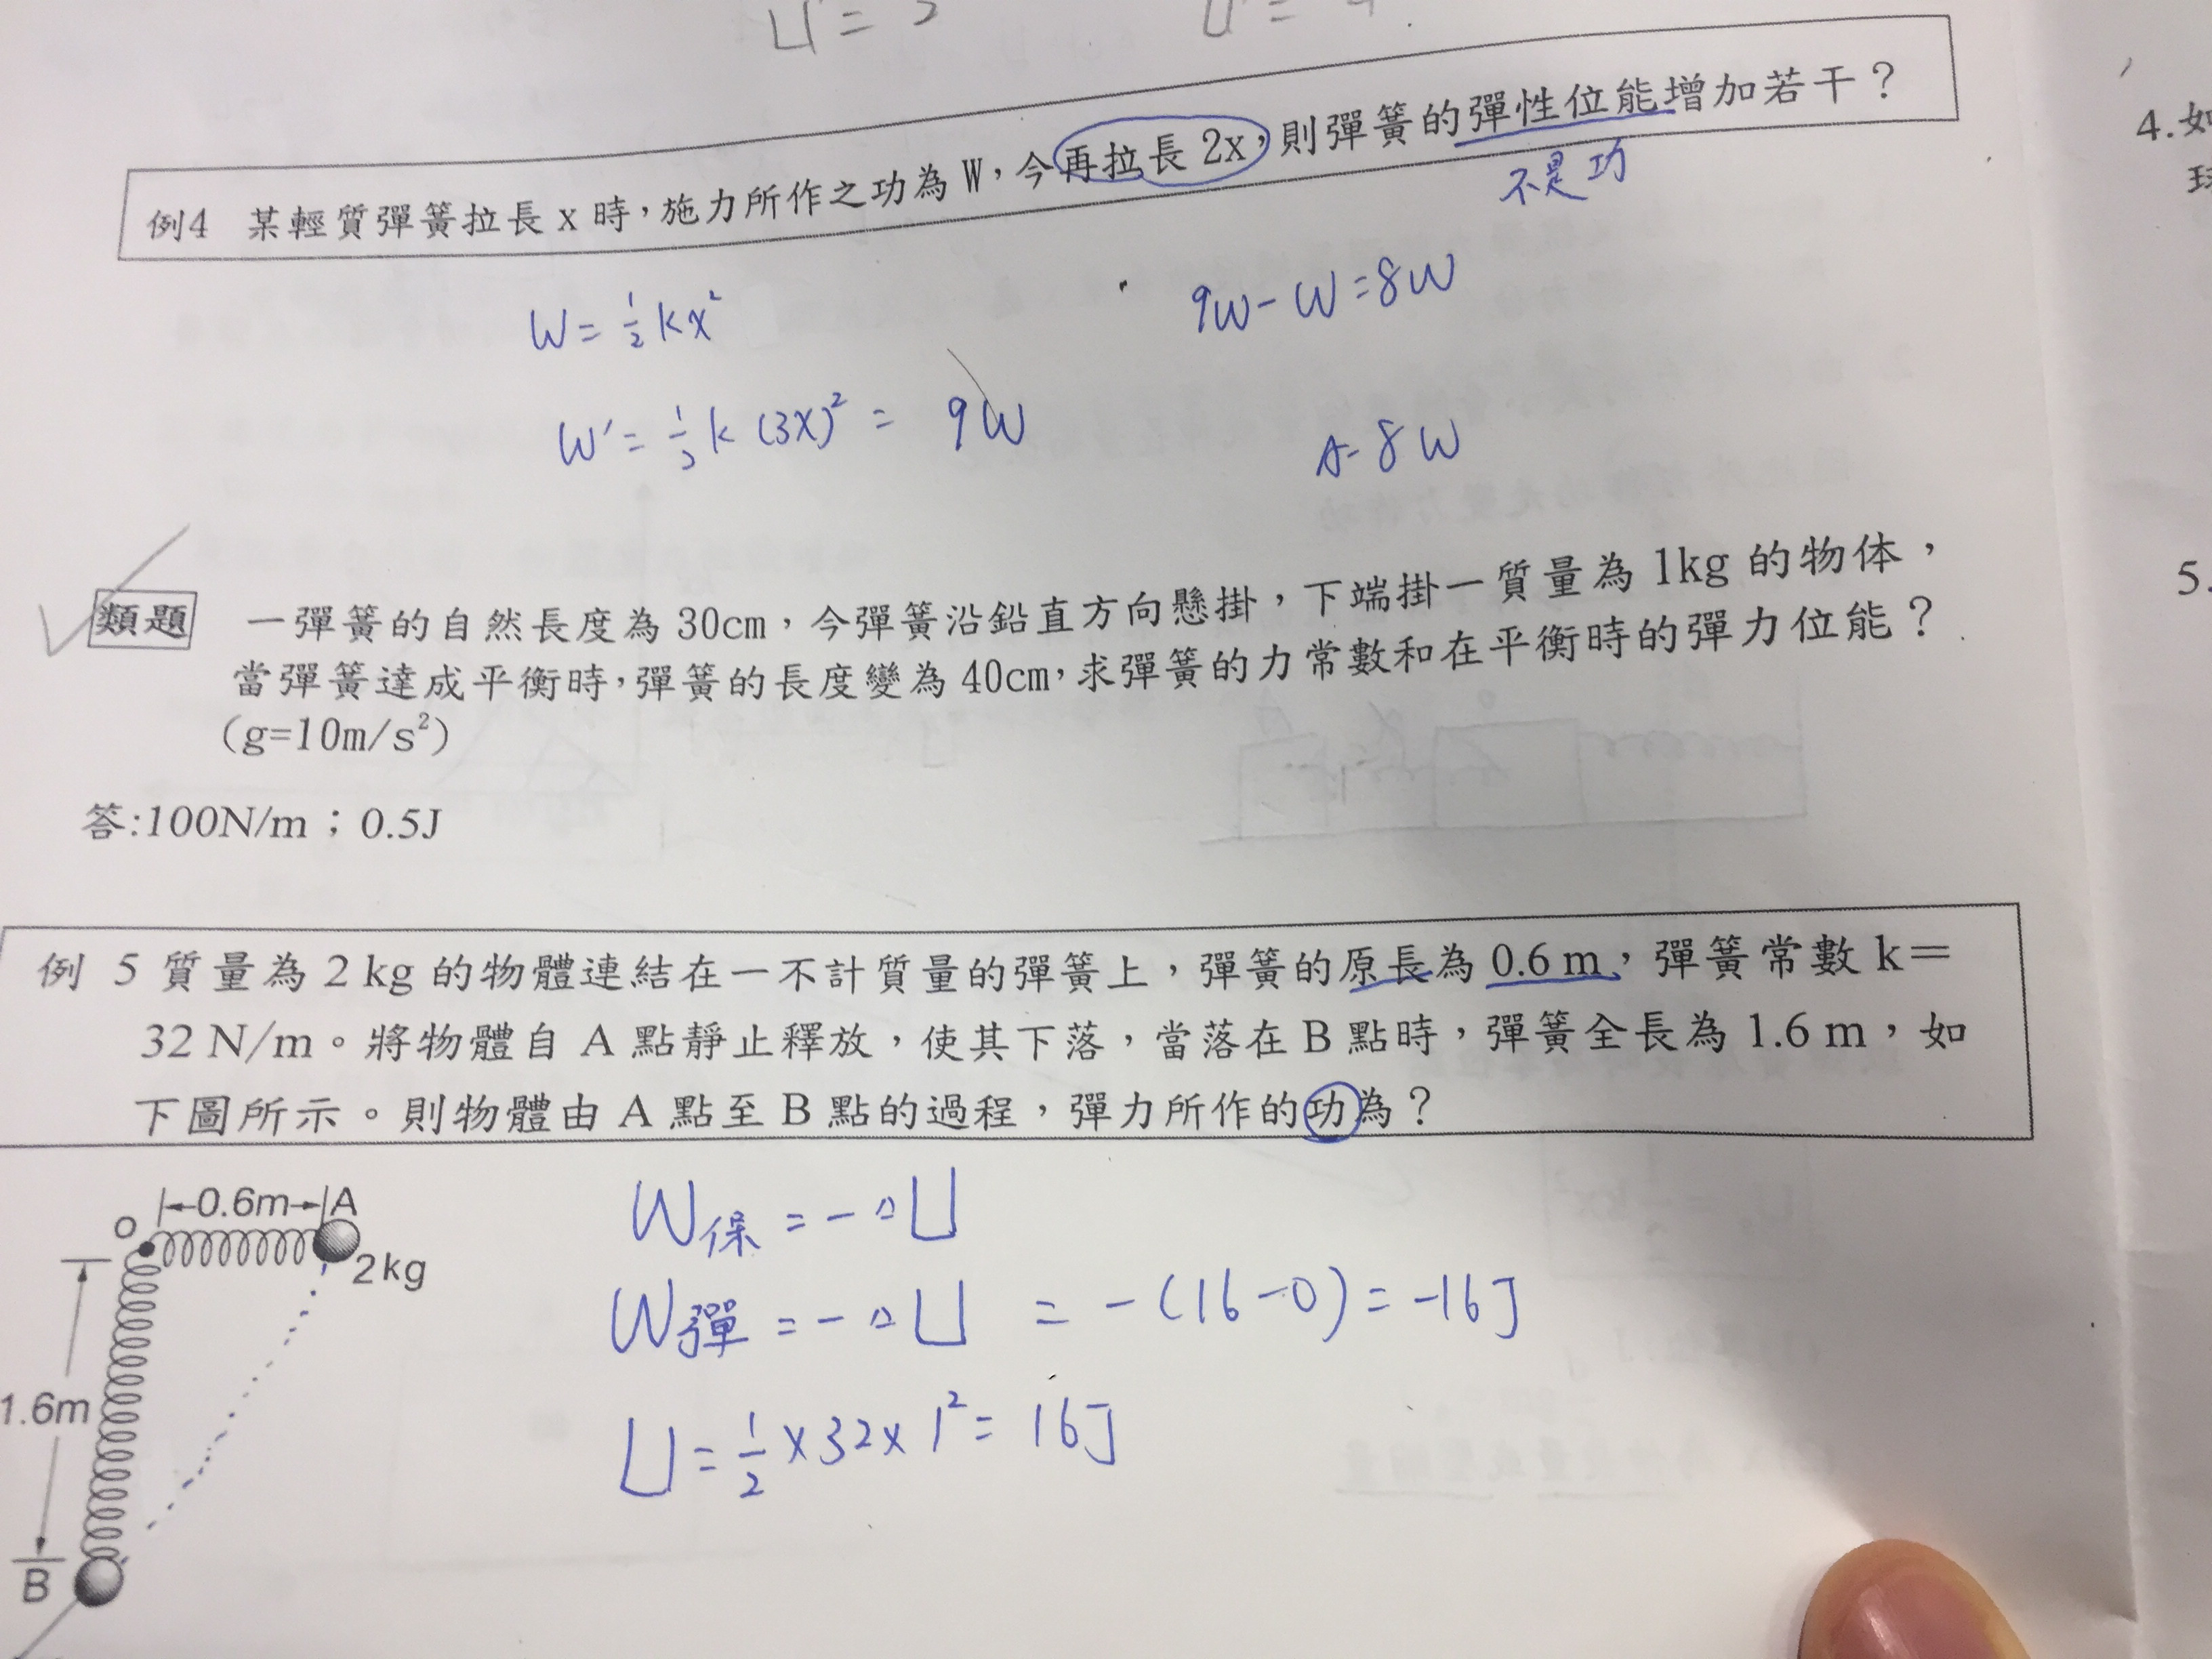 U = 2
U =
例4 某輕質彈簧拉長 x 時，施力所作之功為 W，今再拉長 2x，則彈簧的彈性位能增加若干？
不是功
W = ½ kx²
9W - W = 8W
W' = ½ k (3x)² = 9W
A- 8W
類題 一彈簧的自然長度為 30cm，今彈簧沿鉛直方向懸掛，下端掛一質量為 1kg 的物体，
當彈簧達成平衡時，彈簧的長度變為 40cm，求彈簧的力常數和在平衡時的彈力位能？
(g=10m/s²)
答:100N/m；0.5J
例 5 質量為 2 kg 的物體連結在一不計質量的彈簧上，彈簧的原長為 0.6 m，彈簧常數 k＝
32 N/m。將物體自 A 點靜止釋放，使其下落，當落在 B 點時，彈簧全長為 1.6 m，如
下圖所示。則物體由 A 點至 B 點的過程，彈力所作的功為？
0.6m A
O
2kg
1.6m
B
W保 = -△U
W彈 = -△U = -(16-0) = -16J
U = ½ × 32 × 1² = 16J
4.如
球
5.